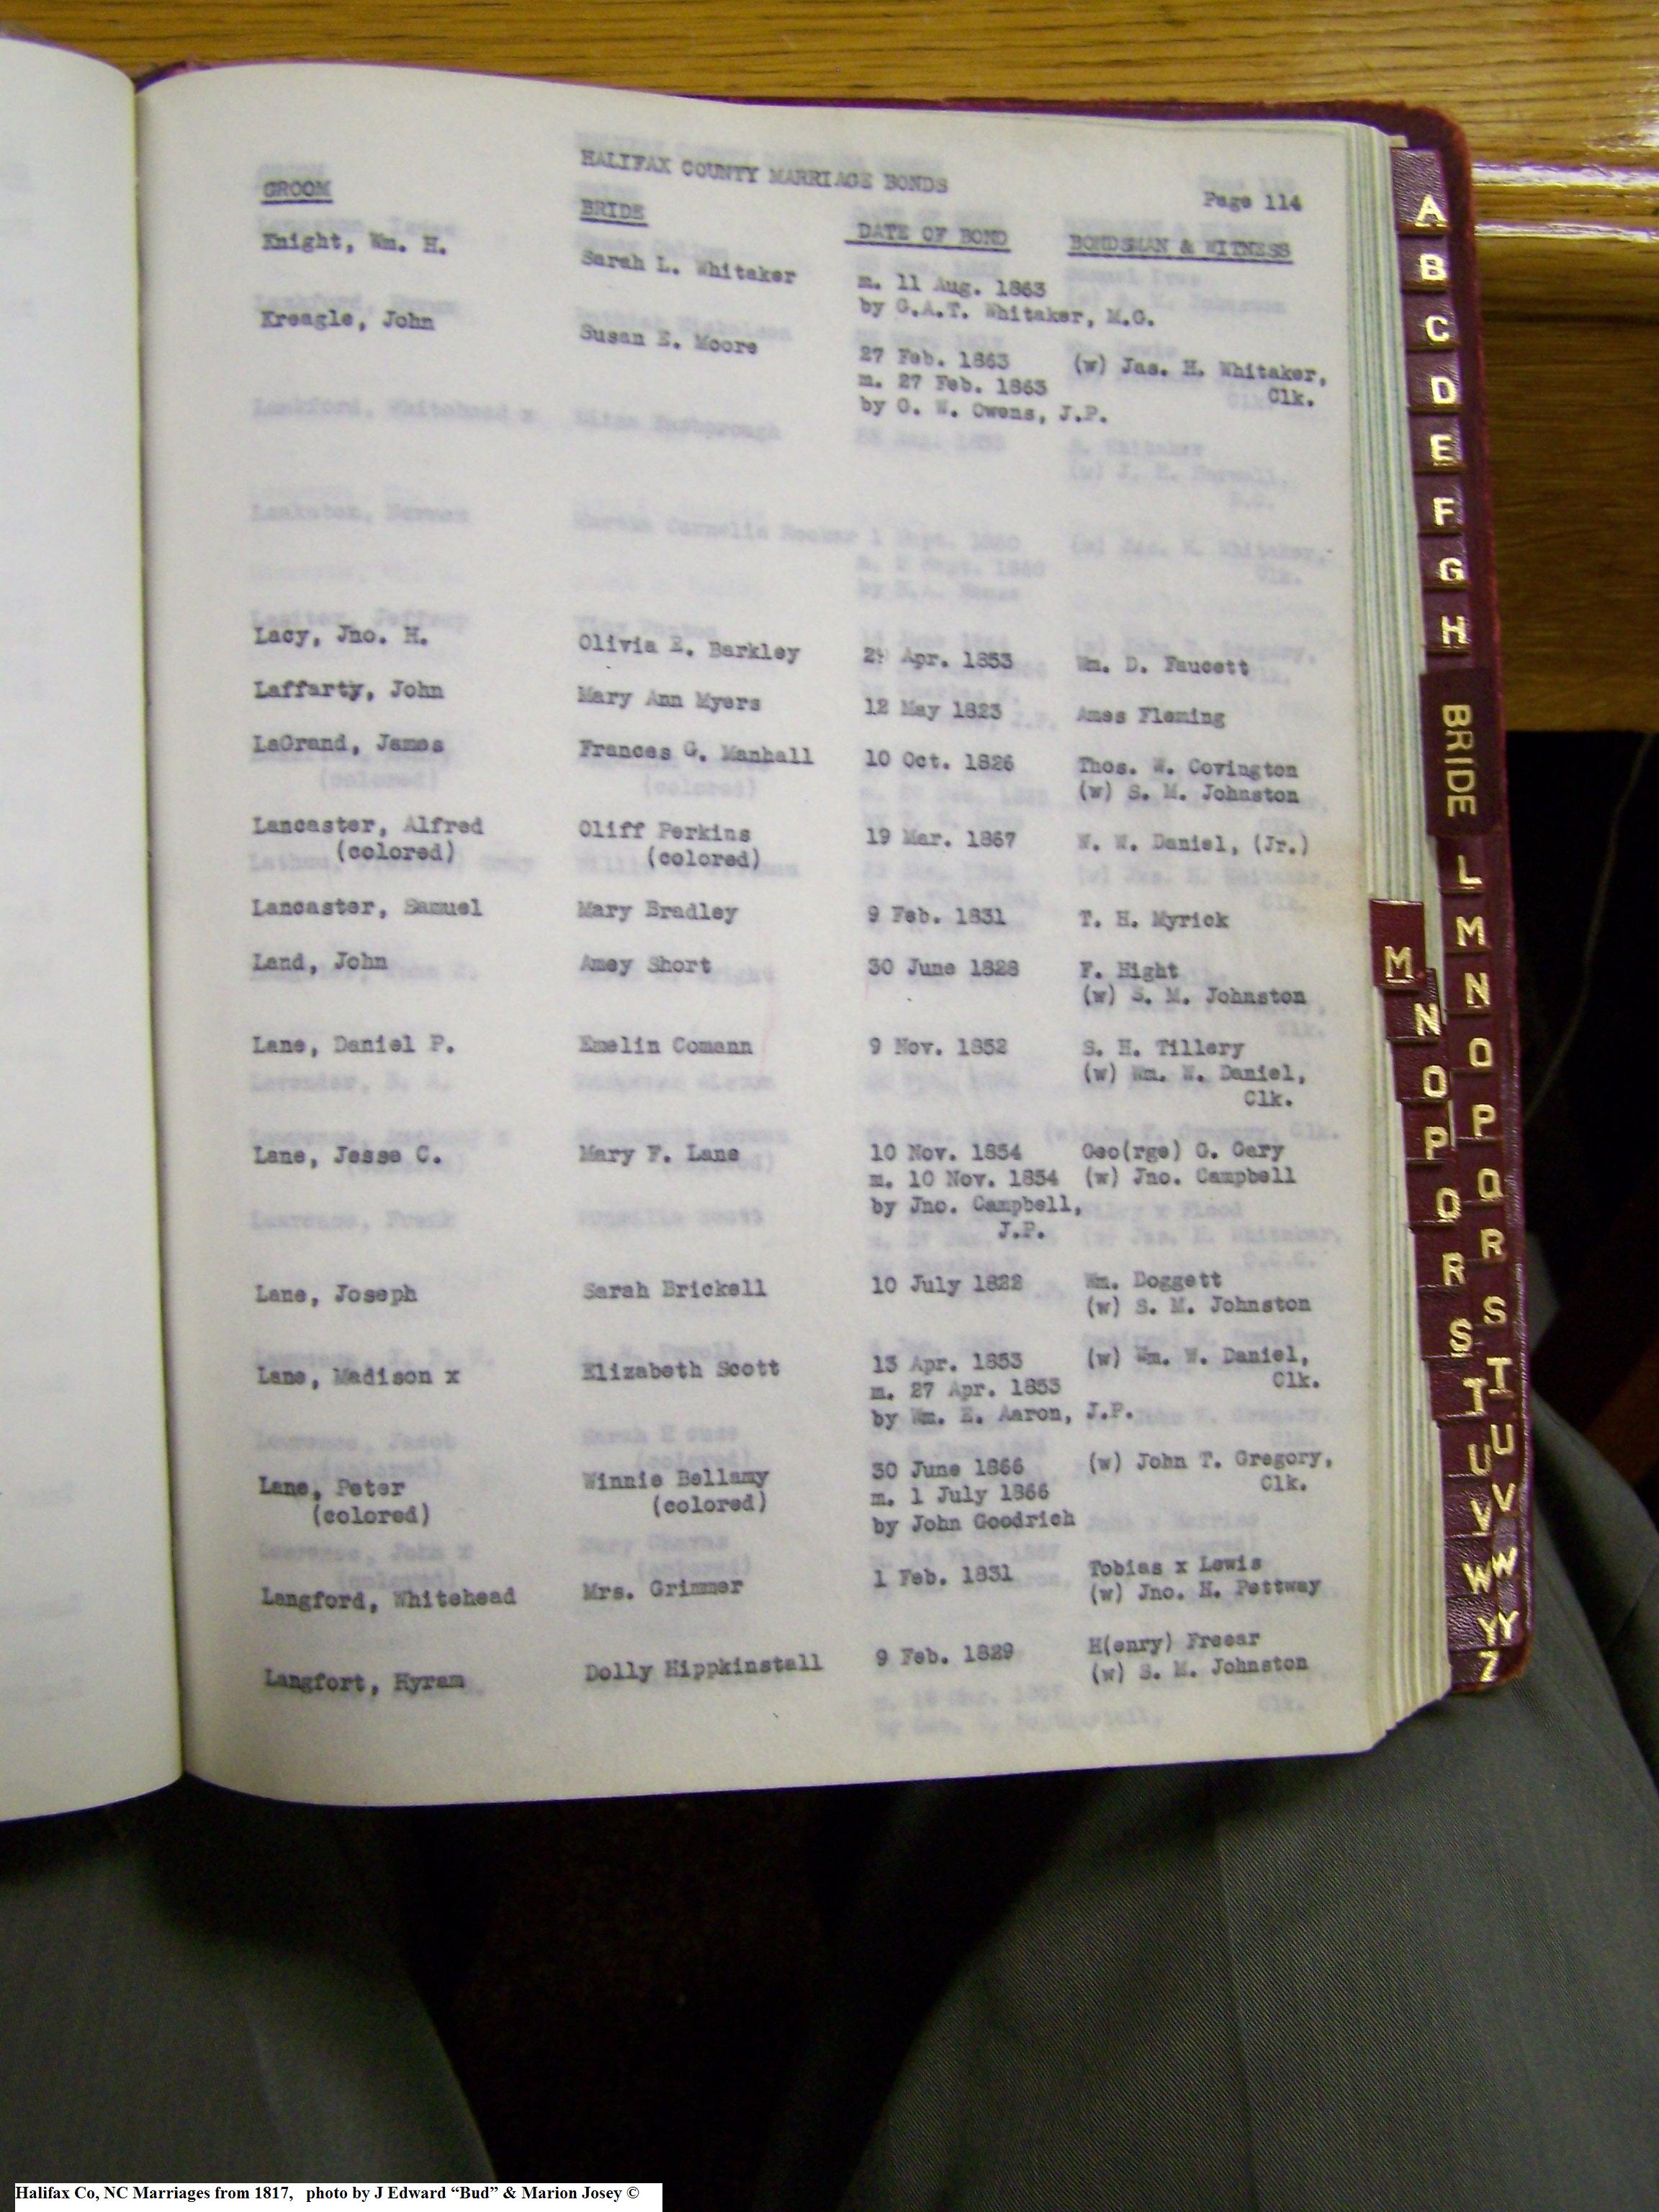 HALIFAX COUNTY MARRIAGE BONDS
Page 114
GROOM BRIDE DATE OF BOND BONDSMAN & WITNESS
Knight, Wm. H. Sarah L. Whitaker m. 11 Aug. 1863
by G.A.T. Whitaker, M.G.
Kreagle, John Susan E. Moore 27 Feb. 1863 (w) Jas. H. Whitaker,
m. 27 Feb. 1863 Clk.
by G. W. Owens, J.P.
Lacy, Jno. H. Olivia E. Barkley Apr. 1853 Wm. D. Faucett
Laffarty, John Mary Ann Myers 12 May 1823 Ames Fleming
LaGrand, James Frances G. Manhall 10 Oct. 1826 Thos. W. Covington
(w) S. M. Johnston
Lancaster, Alfred Oliff Perkins 19 Mar. 1867 W. W. Daniel, (Jr.)
(colored) (colored)
Lancaster, Samuel Mary Bradley 9 Feb. 1831 T. H. Myrick
Land, John Amey Short 30 June 1828 F. Hight
(w) S. M. Johnston
Lane, Daniel P. Emelin Comann 9 Nov. 1852 S. H. Tillery
(w) Wm. W. Daniel,
Clk.
Lane, Jesse C. Mary F. Lane 10 Nov. 1854 Geo(rge) G. Gary
m. 10 Nov. 1854 (w) Jno. Campbell
by Jno. Campbell,
J.P.
Lane, Joseph Sarah Brickell 10 July 1822 Wm. Doggett
(w) S. M. Johnston
Lane, Madison x Elizabeth Scott 13 Apr. 1853 (w) Wm. W. Daniel,
m. 27 Apr. 1853 Clk.
by Wm. E. Aaron, J.P.
Lane, Peter Winnie Bellamy 30 June 1866 (w) John T. Gregory,
(colored) (colored) m. 1 July 1866 Clk.
by John Goodrich
Langford, Whitehead Mrs. Grimmer 1 Feb. 1831 Tobias x Lewis
(w) Jno. H. Pettway
Langfort, Hyram Dolly Hippkinstall 9 Feb. 1829 H(enry) Freear
(w) S. M. Johnston
A
B
C
D
E
F
G
H
BRIDE
L
M
N
O
P
Q
R
S
T
U
V
W
Y
M
N
O
P
Q
R
S
T
U
V
W
Y
Z
Halifax Co, NC Marriages from 1817, photo by J Edward “Bud” & Marion Josey ©